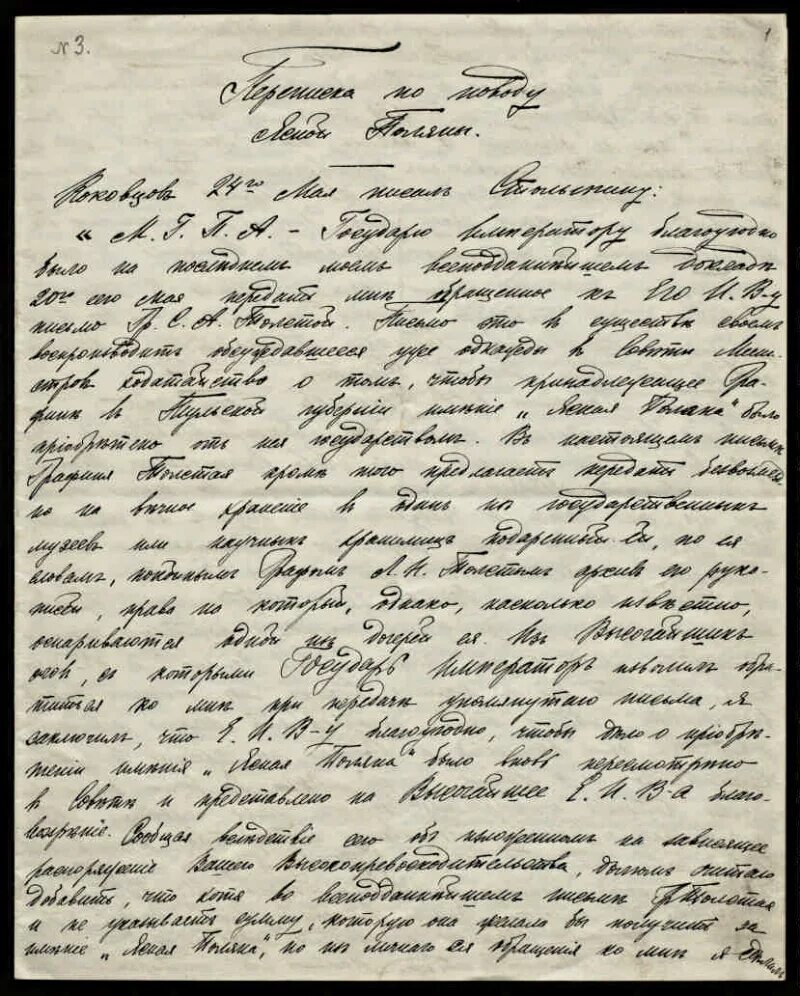 № 3.
1
Переписка по поводу
Ясной Поляны.
Коковцовъ 24го Мая писалъ Столыпину:
„М. Г. П. А. – Государю Императору благоугодно
было на послѣднемъ моемъ всеподданнѣйшемъ докладѣ
20го сего мая передать мнѣ обращенное къ Его И. В-у
письмо Гр. С. А. Толстой. Письмо это въ существѣ своемъ
воспроизводитъ обсуждавшееся уже однажды въ Совѣтѣ Мини-
стровъ ходатайство о томъ, чтобы принадлежащее Гра-
финѣ въ Тульской губерніи имѣніе „Ясная Поляна" было
пріобрѣтено отъ нея государствомъ. Въ настоящемъ письмѣ
Графиня Толстая кромѣ того предлагаетъ передать безвозмезд-
но на вѣчное храненіе въ одинъ изъ государственныхъ
музеевъ или научныхъ хранилищъ подаренный ей, по ея
словамъ, покойнымъ Графомъ Л. Н. Толстымъ архивъ его руко-
писей, права на который, однако, насколько извѣстно,
оспариваются одной изъ дочерей ея. Изъ Высочайшихъ
словъ, съ которыми Государь Императоръ изволилъ обра-
титься ко мнѣ при передачѣ упомянутаго письма, я
заключилъ, что Е. И. В-у благоугодно, чтобы дѣло о пріобрѣ-
теніи имѣнія „Ясная Поляна" было вновь пересмотрѣно
въ Совѣтѣ и представлено на Высочайшее Е. И. В-а благо-
воззрѣніе. Сообщая вслѣдствіе сего объ изложенномъ на зависящее
распоряженіе Вашего Высокопревосходительства, долгомъ считаю
добавить, что хотя во всеподданнѣйшемъ письмѣ Гр. Толстая
и не указываетъ сумму, которую она желала бы получить за
имѣніе „Ясная Поляна", но изъ личнаго ея обращенія ко мнѣ я